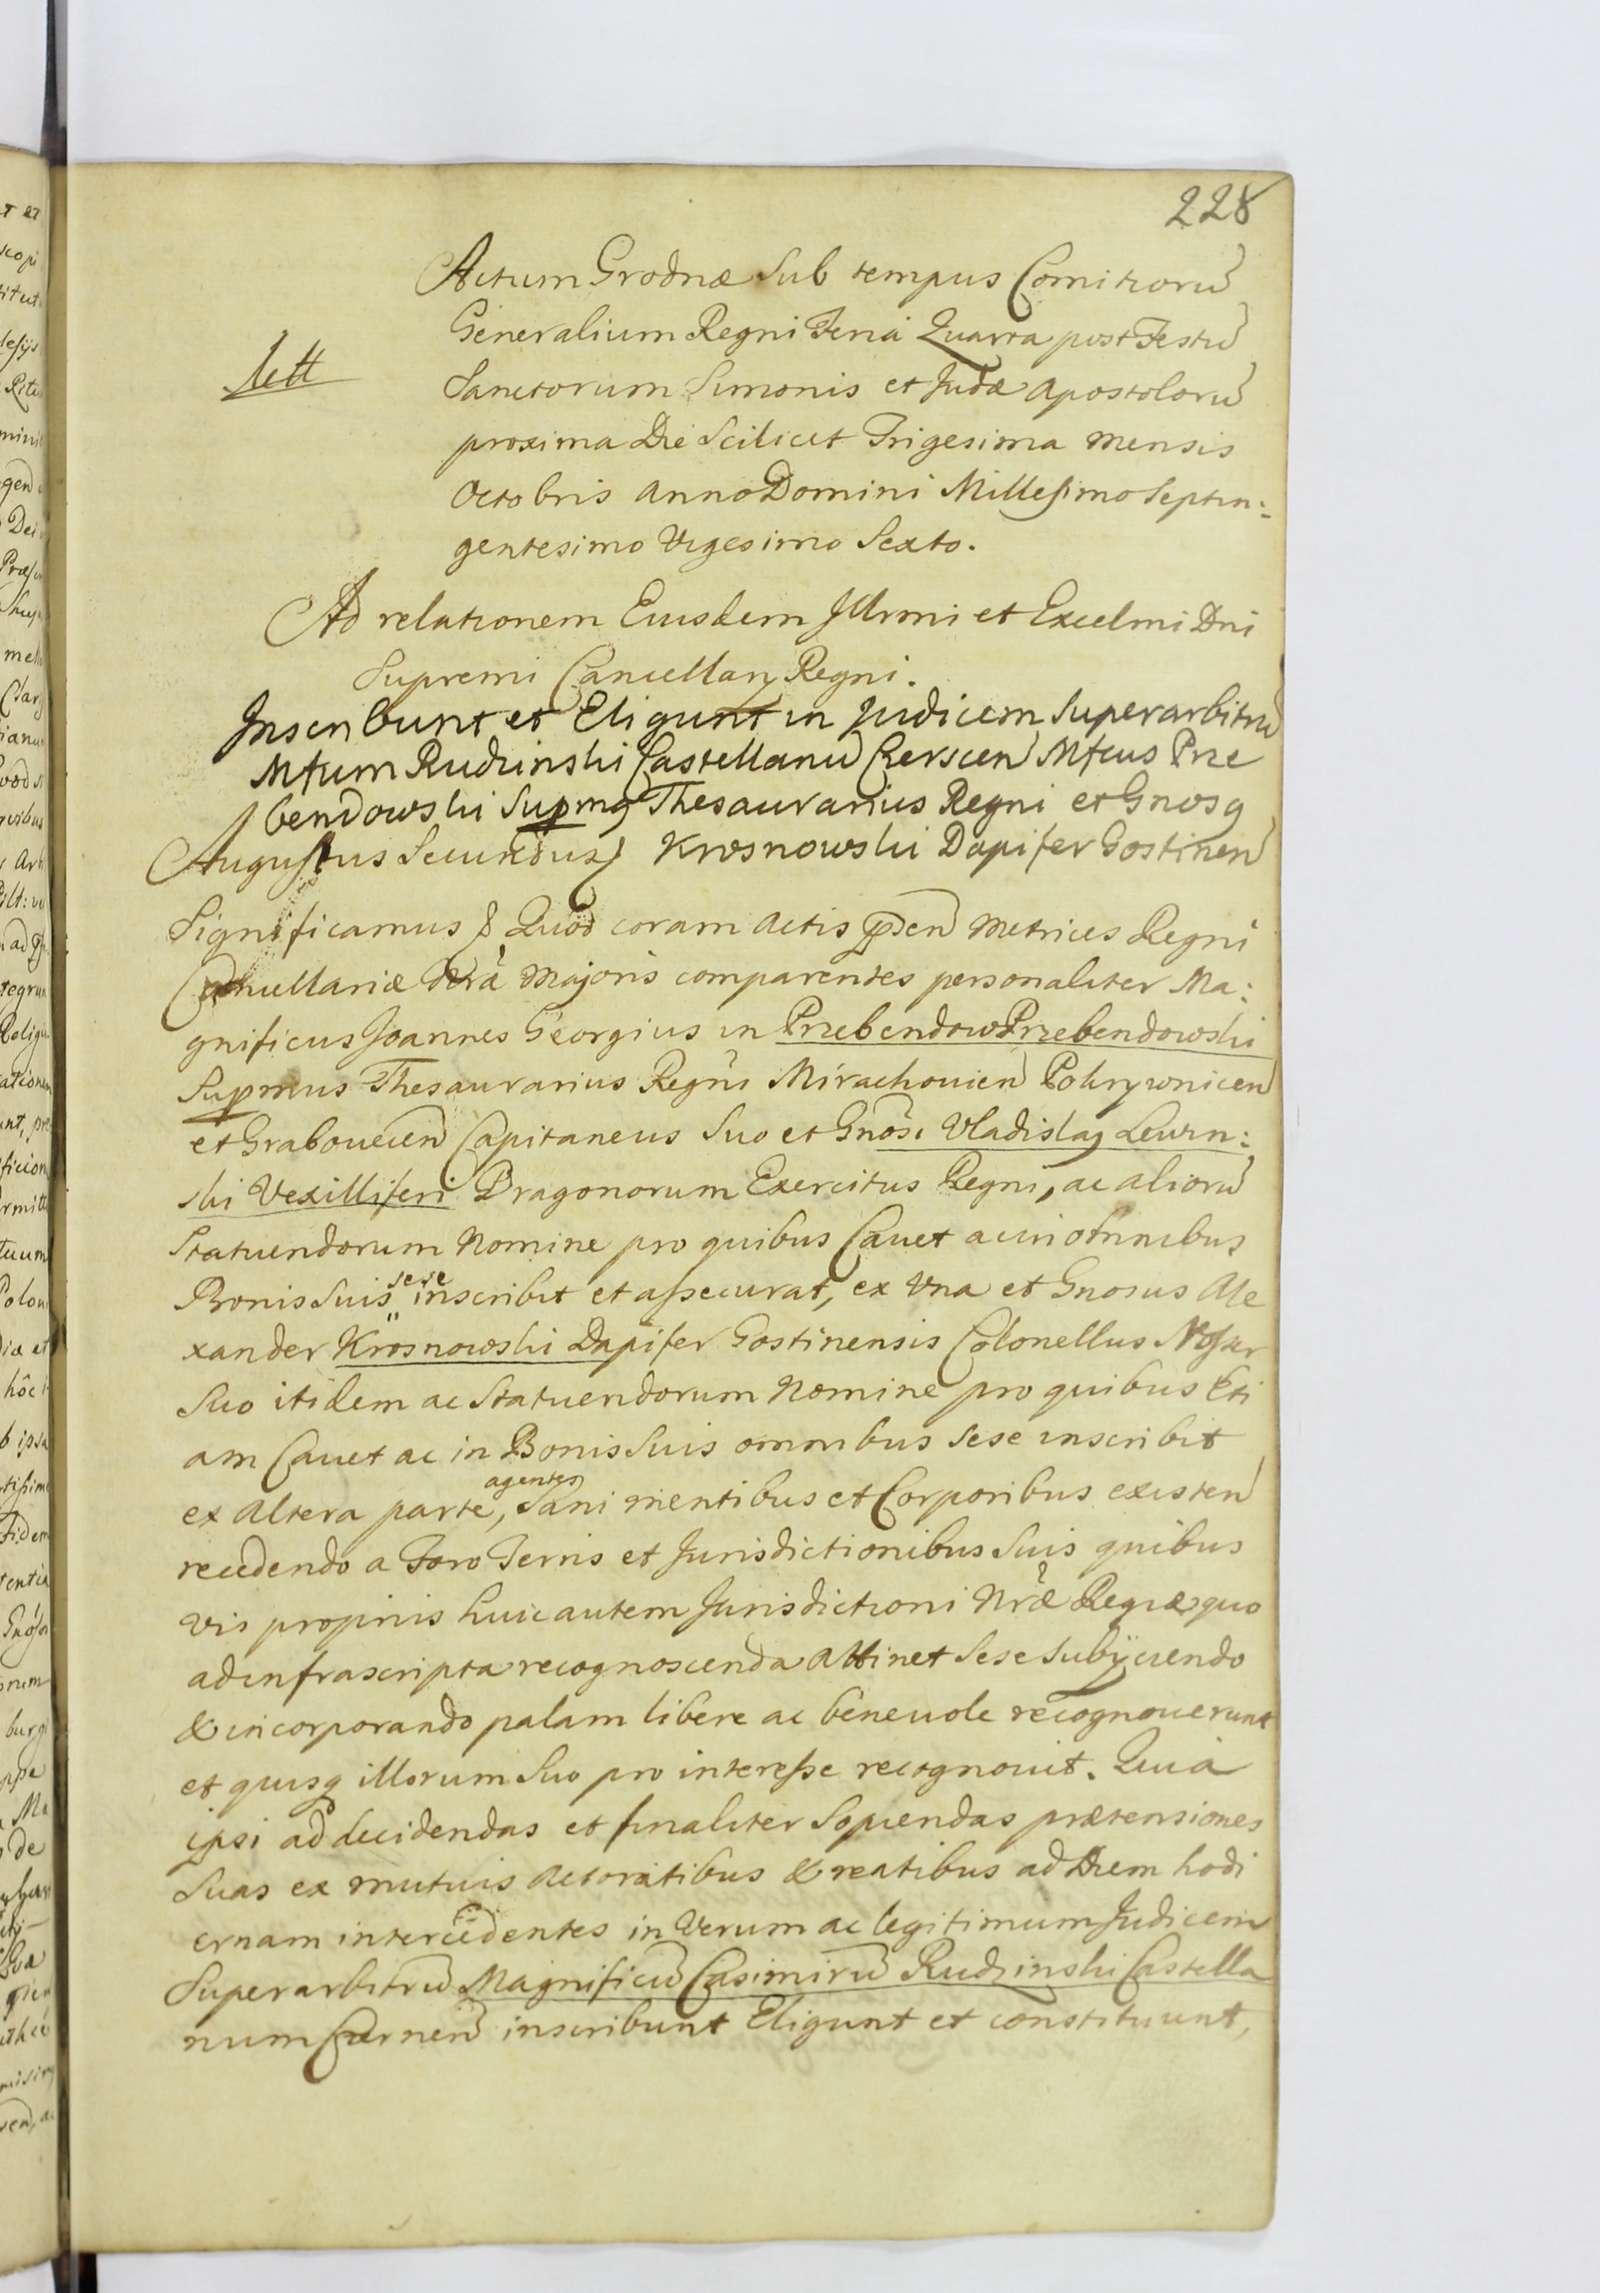 228
Actum Grodnæ Sub tempus Comitiorũ
Generalium Regni Feria Quarta post Festũ
Sanctorum Simonis et Judæ Apostolorũ
proxima Die Scilicet Trigesima mensis
Octobris Anno Domini Millesimo Septin:
gentesimo Vigesimo Sexto.
Ad relationem Eiusdem Illrmi et Excelmi Dni
Supremi Cancellarij Regni.
Inscribunt et Eligunt in Judicem Superarbitrũ
Mfcum Rudzinski Castellanũ Cerscen Mfcus Prze
bendowski Supmg Thesaurarius Regni et Gnosg
Augustus Secundus Krosnowski Dapifer Gostinen
Significamus Quod coram Actis pñden Metrices Regni
Cancellariæ Nrã Majoris comparentes personaliter Ma:
gnificus Joannes Georgius in Przebendow Przebendowski
Supmus Thesaurarius Regni Mirachovien Pokrzywnicen
et Grabovecen Capitaneus Suo et Gnosi Vladislaj Lewin:
ski Vexilliferi Dragonorum Exercitus Regni, ac aliorũ
Statuendorum Nomine pro quibus Cavet ac in omnibus
Bonis Suis sese inscribit et assecurat, ex Vna et Gnosus Ale
xander Krosnowski Dapifer Gostinensis Colonellus Noster
Suo itidem ac Statuendorum Nomine pro quibus Eti
am Cavet ac in Bonis Suis omnibus Sese inscribit
ex Altera parte, agentes Sani mentibus et Corporibus existen
recedendo a Foro Terris et Jurisdictionibus Suis quibus
vis proprijs huic autem Jurisdictioni Nræ Regiæ quo
ad infrascripta recognoscenda Attinet Sese Subijciendo
& incorporando palam libere ac benevole recognoverunt
et quisq illorum Suo pro interesse recognovit. Quia
ipsi ad decidendas et finaliter Sopiendas prætensiones
Suas ex mutuis Actoratibus & reatibus ad Diem hodi
ernam intercedentes in Verum ac legitimum Judicem
Superarbitrũ Magnificũ Casimirũ Rudzinski Castella
num Czernen inscribunt Eligunt et constituunt,